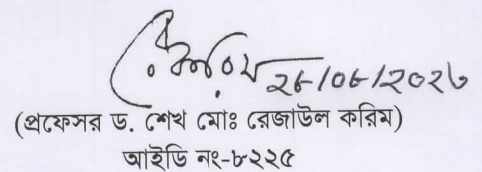 ২৮/০৮/২০২৩
(প্রফেসর ড. শেখ মোঃ রেজাউল করিম)
আইডি নং-৮২২৫